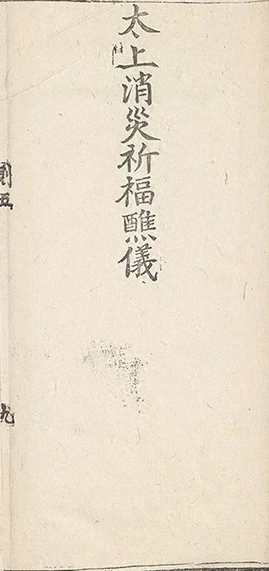 太上消災祈福醮儀
則五
九